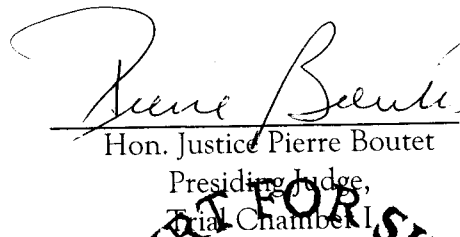 Pierre Boutet
Hon. Justice Pierre Boutet
Presiding Judge,
Trial Chamber I
RT FOR S